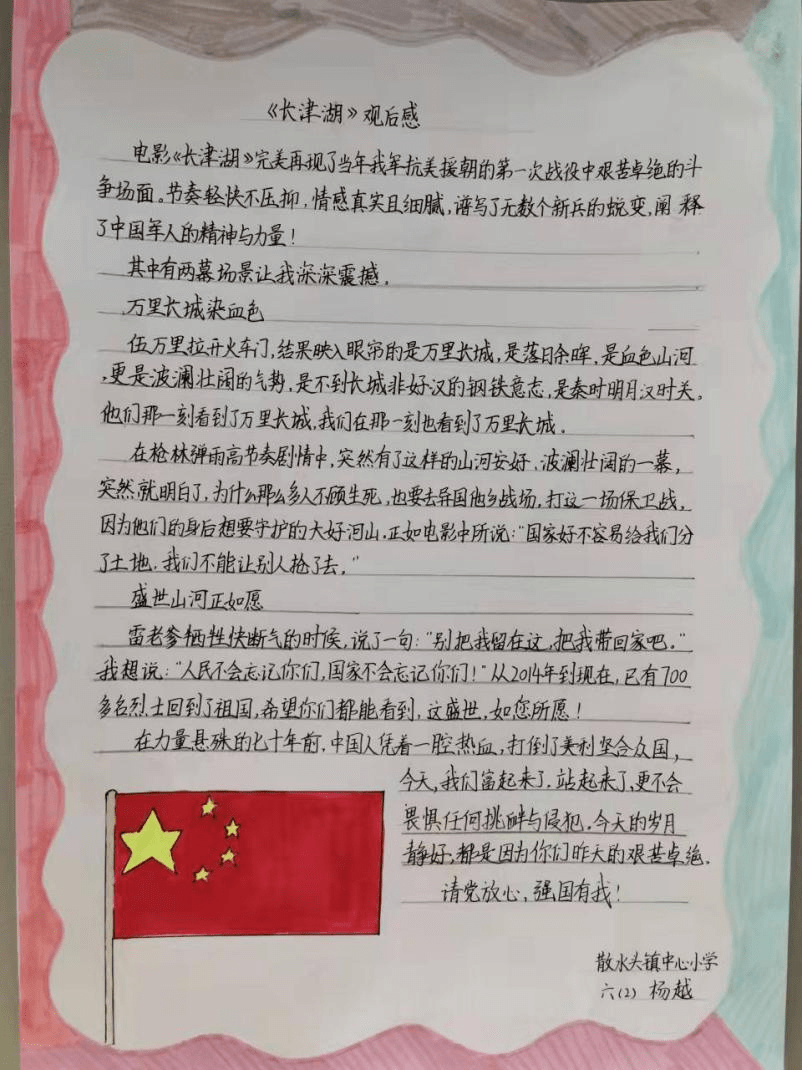 《长津湖》观后感
电影《长津湖》完美再现了当年我军抗美援朝的第一次战役中艰苦卓绝的斗
争场面。节奏轻快不压抑,情感真实且细腻,谱写了无数个新兵的蜕变,阐释
了中国军人的精神与力量!
其中有两幕场景让我深深震撼。
万里长城染血色
伍万里拉开火车门,结果映入眼帘的是万里长城,是落日余晖,是血色山河
,更是波澜壮阔的气势,是不到长城非好汉的钢铁意志,是秦时明月汉时关。
他们那一刻看到了万里长城,我们在那一刻也看到了万里长城。
在枪林弹雨高节奏剧情中,突然有了这样的山河安好、波澜壮阔的一幕,
突然就明白了,为什么那么多人不顾生死,也要去异国他乡战场,打这一场保卫战,
因为他们的身后想要守护的大好河山。正如电影中所说:"国家好不容易给我们分
了土地,我们不能让别人抢了去。"
盛世山河正如愿
雷老爹牺牲快断气的时候,说了一句:"别把我留在这,把我带回家吧。"
我想说:"人民不会忘记你们,国家不会忘记你们!"从2014年到现在,已有700
多名烈士回到了祖国,希望你们都能看到,这盛世,如您所愿!
在力量悬殊的七十年前,中国人凭着一腔热血,打倒了美利坚合众国,
今天,我们富起来了,站起来了,更不会
畏惧任何挑衅与侵犯。今天的岁月
静好,都是因为你们昨天的艰苦卓绝.
请党放心,强国有我!
散水头镇中心小学
六(2) 杨越